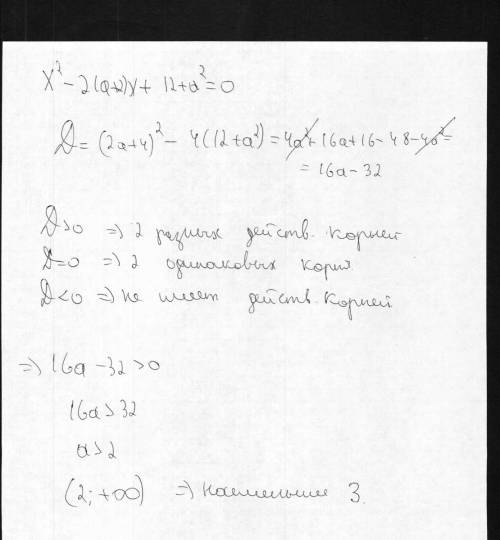 x² - 2(a+2)x + 12+a² = 0
D = (2a+4)² - 4(12+a²) = 4a² + 16a + 16 - 48 - 4a² =
= 16a - 32
D>0 => 2 разных действ. корней
D=0 => 2 одинаковых корня
D<0 => не имеет действ. корней
=> 16a - 32 > 0
16a > 32
a > 2
(2; +∞) => наименьшее 3.